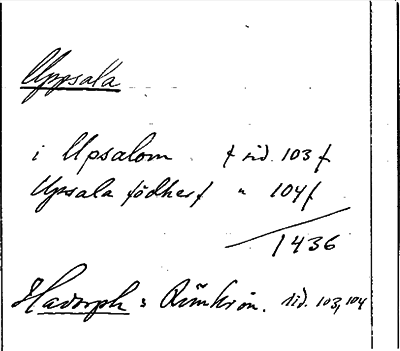 Uppsala
i Upsalom f sid. 103 f
Upsala födher f " 104 f
1436
Hadorph: Rimkrön. sid. 103, 104